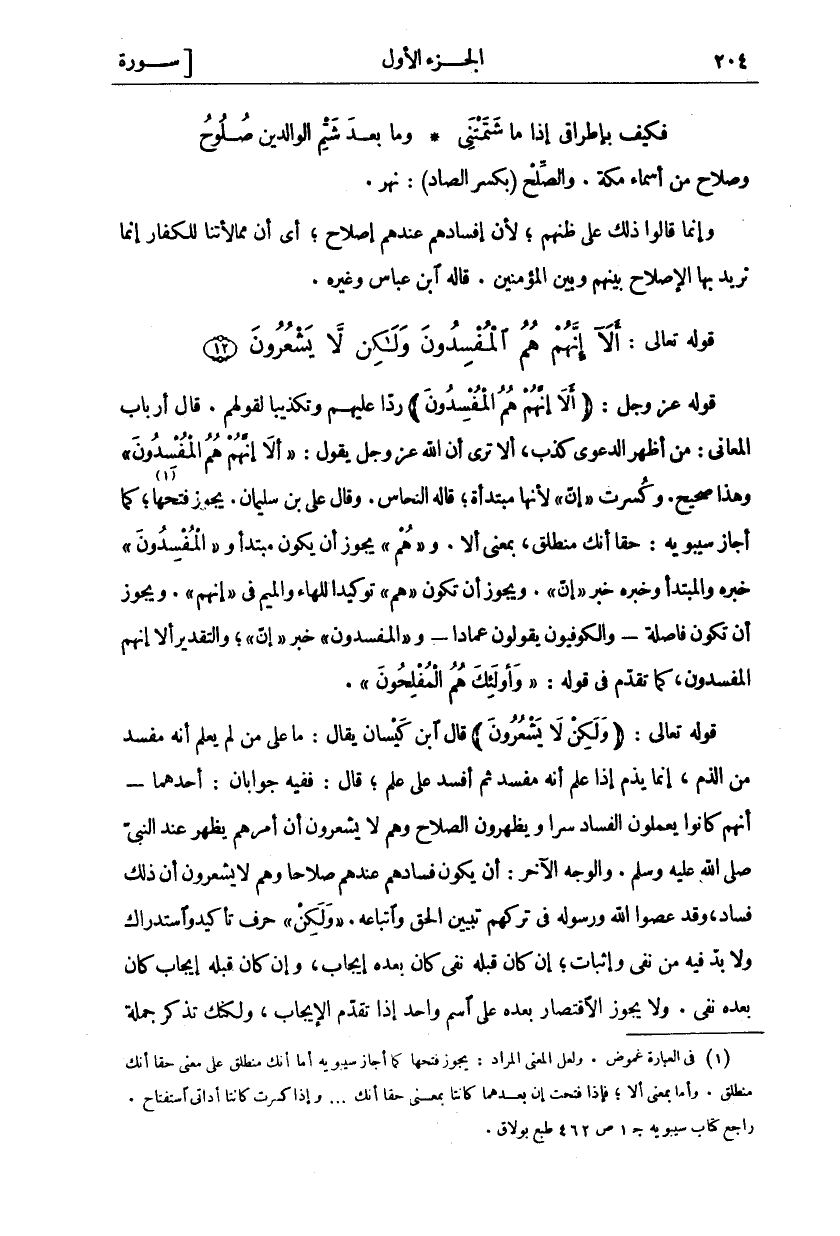 ٢٠٤ الجـزء الأول [ ســورة
فكيف بإطراقى إذا ما شَتَمْتَنِى * وما بعـدَ شَتْمِ الوالدين صُـلُوحُ
وصلاح من أسماء مكة . والصِّلْح (بكسر الصاد) : نهر .
وإنما قالوا ذلك على ظنهم ؛ لأن إفسادهم عندهم إصلاح ؛ أى أن ممالأتنا للكفار إنما
تريد بها الإصلاح بينهم وبين المؤمنين . قاله ٱبن عباس وغيره .
قوله تعالى : أَلَآ إِنَّهُمْ هُمُ ٱلْمُفْسِدُونَ وَلَـٰكِن لَّا يَشْعُرُونَ ﴿١٢﴾
قوله عز وجل : ﴿ أَلَا إِنَّهُمْ هُمُ الْمُفْسِدُونَ ﴾ ردّا عليهـم وتكذيبا لقولهم . قال أرباب
المعانى : من أظهر الدعوى كذب، ألا ترى أن الله عز وجل يقول : « أَلَا إِنَّهُمْ هُمُ الْمُفْسِدُونَ»
وهذا صحيح. وكُسرت «إنّ» لأنها مبتدأة ؛ قاله النحاس. وقال على بن سليمان. يجوز فتحها(١)؛ كما
أجاز سيبويه : حقا أنك منطلق، بمعنى ألا . و« هُمْ » يجوز أن يكون مبتدأ و« الْمُفْسِدُونَ »
خبره والمبتدأ وخبره خبر «إنّ» . ويجوز أن تكون «هم» توكيدا للهاء والميم فى «إنهم» . ويجوز
أن تكون فاصلة — والكوفيون يقولون عمادا — و«المفسدون» خبر «إنّ»؛ والتقدير ألا إنهم
المفسدون، كما تقدّم فى قوله : « وَأُولَئِكَ هُمُ الْمُفْلِحُونَ » .
قوله تعالى : ﴿ وَلَكِنْ لَا يَشْعُرُونَ ﴾ قال ٱبن كَيْسان يقال : ما على من لم يعلم أنه مفسد
من الذم ، إنما يذم إذا علم أنه مفسد ثم أفسد على علم ؛ قال : ففيه جوابان : أحدهما —
أنهم كانوا يعملون الفساد سرا ويظهرون الصلاح وهم لا يشعرون أن أمرهم يظهر عند النبىّ
صلى الله عليه وسلم . والوجه الآخر : أن يكون فسادهم عندهم صلاحا وهم لا يشعرون أن ذلك
فساد، وقد عصوا الله ورسوله فى تركهم تبيين الحق وٱتباعه. «وَلَكِنْ» حرف تأكيد وٱستدراك
ولا بدّ فيه من نفى وإثبات؛ إن كان قبله نفى كان بعده إيجاب، وإن كان قبله إيجاب كان
بعده نفى . ولا يجوز الاقتصار بعده على ٱسم واحد إذا تقدّم الإيجاب ، ولكنك تذكر جملة
(١) فى العبارة غموض . ولعل المعنى المراد : يجوز فتحها كما أجاز سيبويه أما أنك منطلق على معنى حقا أنك
منطلق . وأما بمعنى ألا ؛ فإذا فتحت إن بعـدهما كانتا بمعـنى حقا أنك ... وإذا كسرت كانتا أداتى ٱستفتاح .
راجع كتاب سيبويه ج ١ ص ٤٦٢ طبع بولاق .